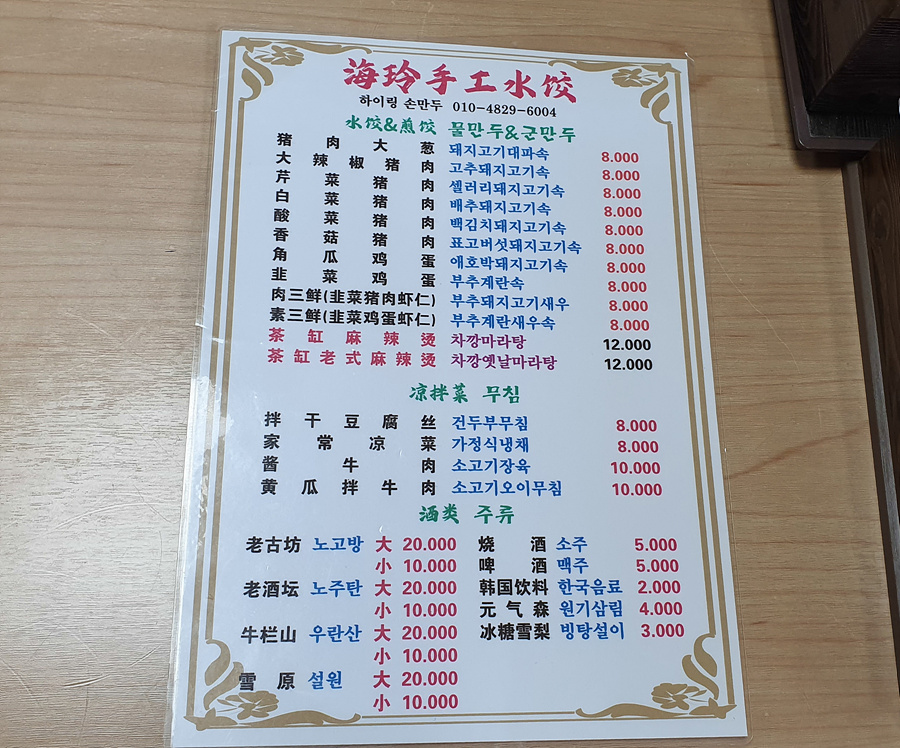 海玲手工水饺
하이링 손만두 010-4829-6004
水饺&煎饺 물만두&군만두
猪肉大葱 돼지고기대파속 8.000
大辣椒猪肉 고추돼지고기속 8.000
芹菜猪肉 셀러리돼지고기속 8.000
白菜猪肉 배추돼지고기속 8.000
酸菜猪肉 백김치돼지고기속 8.000
香菇猪肉 표고버섯돼지고기속 8.000
角瓜鸡蛋 애호박돼지고기속 8.000
韭菜鸡蛋 부추계란속 8.000
肉三鲜(韭菜猪肉虾仁) 부추돼지고기새우 8.000
素三鲜(韭菜鸡蛋虾仁) 부추계란새우속 8.000
茶缸麻辣烫 차깡마라탕 12.000
茶缸老式麻辣烫 차깡옛날마라탕 12.000
凉拌菜 무침
拌干豆腐丝 건두부무침 8.000
家常凉菜 가정식냉채 8.000
酱牛肉 소고기장육 10.000
黄瓜拌牛肉 소고기오이무침 10.000
酒类 주류
老古坊 노고방 大 20.000 烧酒 소주 5.000
小 10.000 啤酒 맥주 5.000
老酒坛 노주탄 大 20.000 韩国饮料 한국음료 2.000
小 10.000 元气森 원기삼림 4.000
牛栏山 우란산 大 20.000 冰糖雪梨 빙탕설이 3.000
小 10.000
雪原 설원 大 20.000
小 10.000